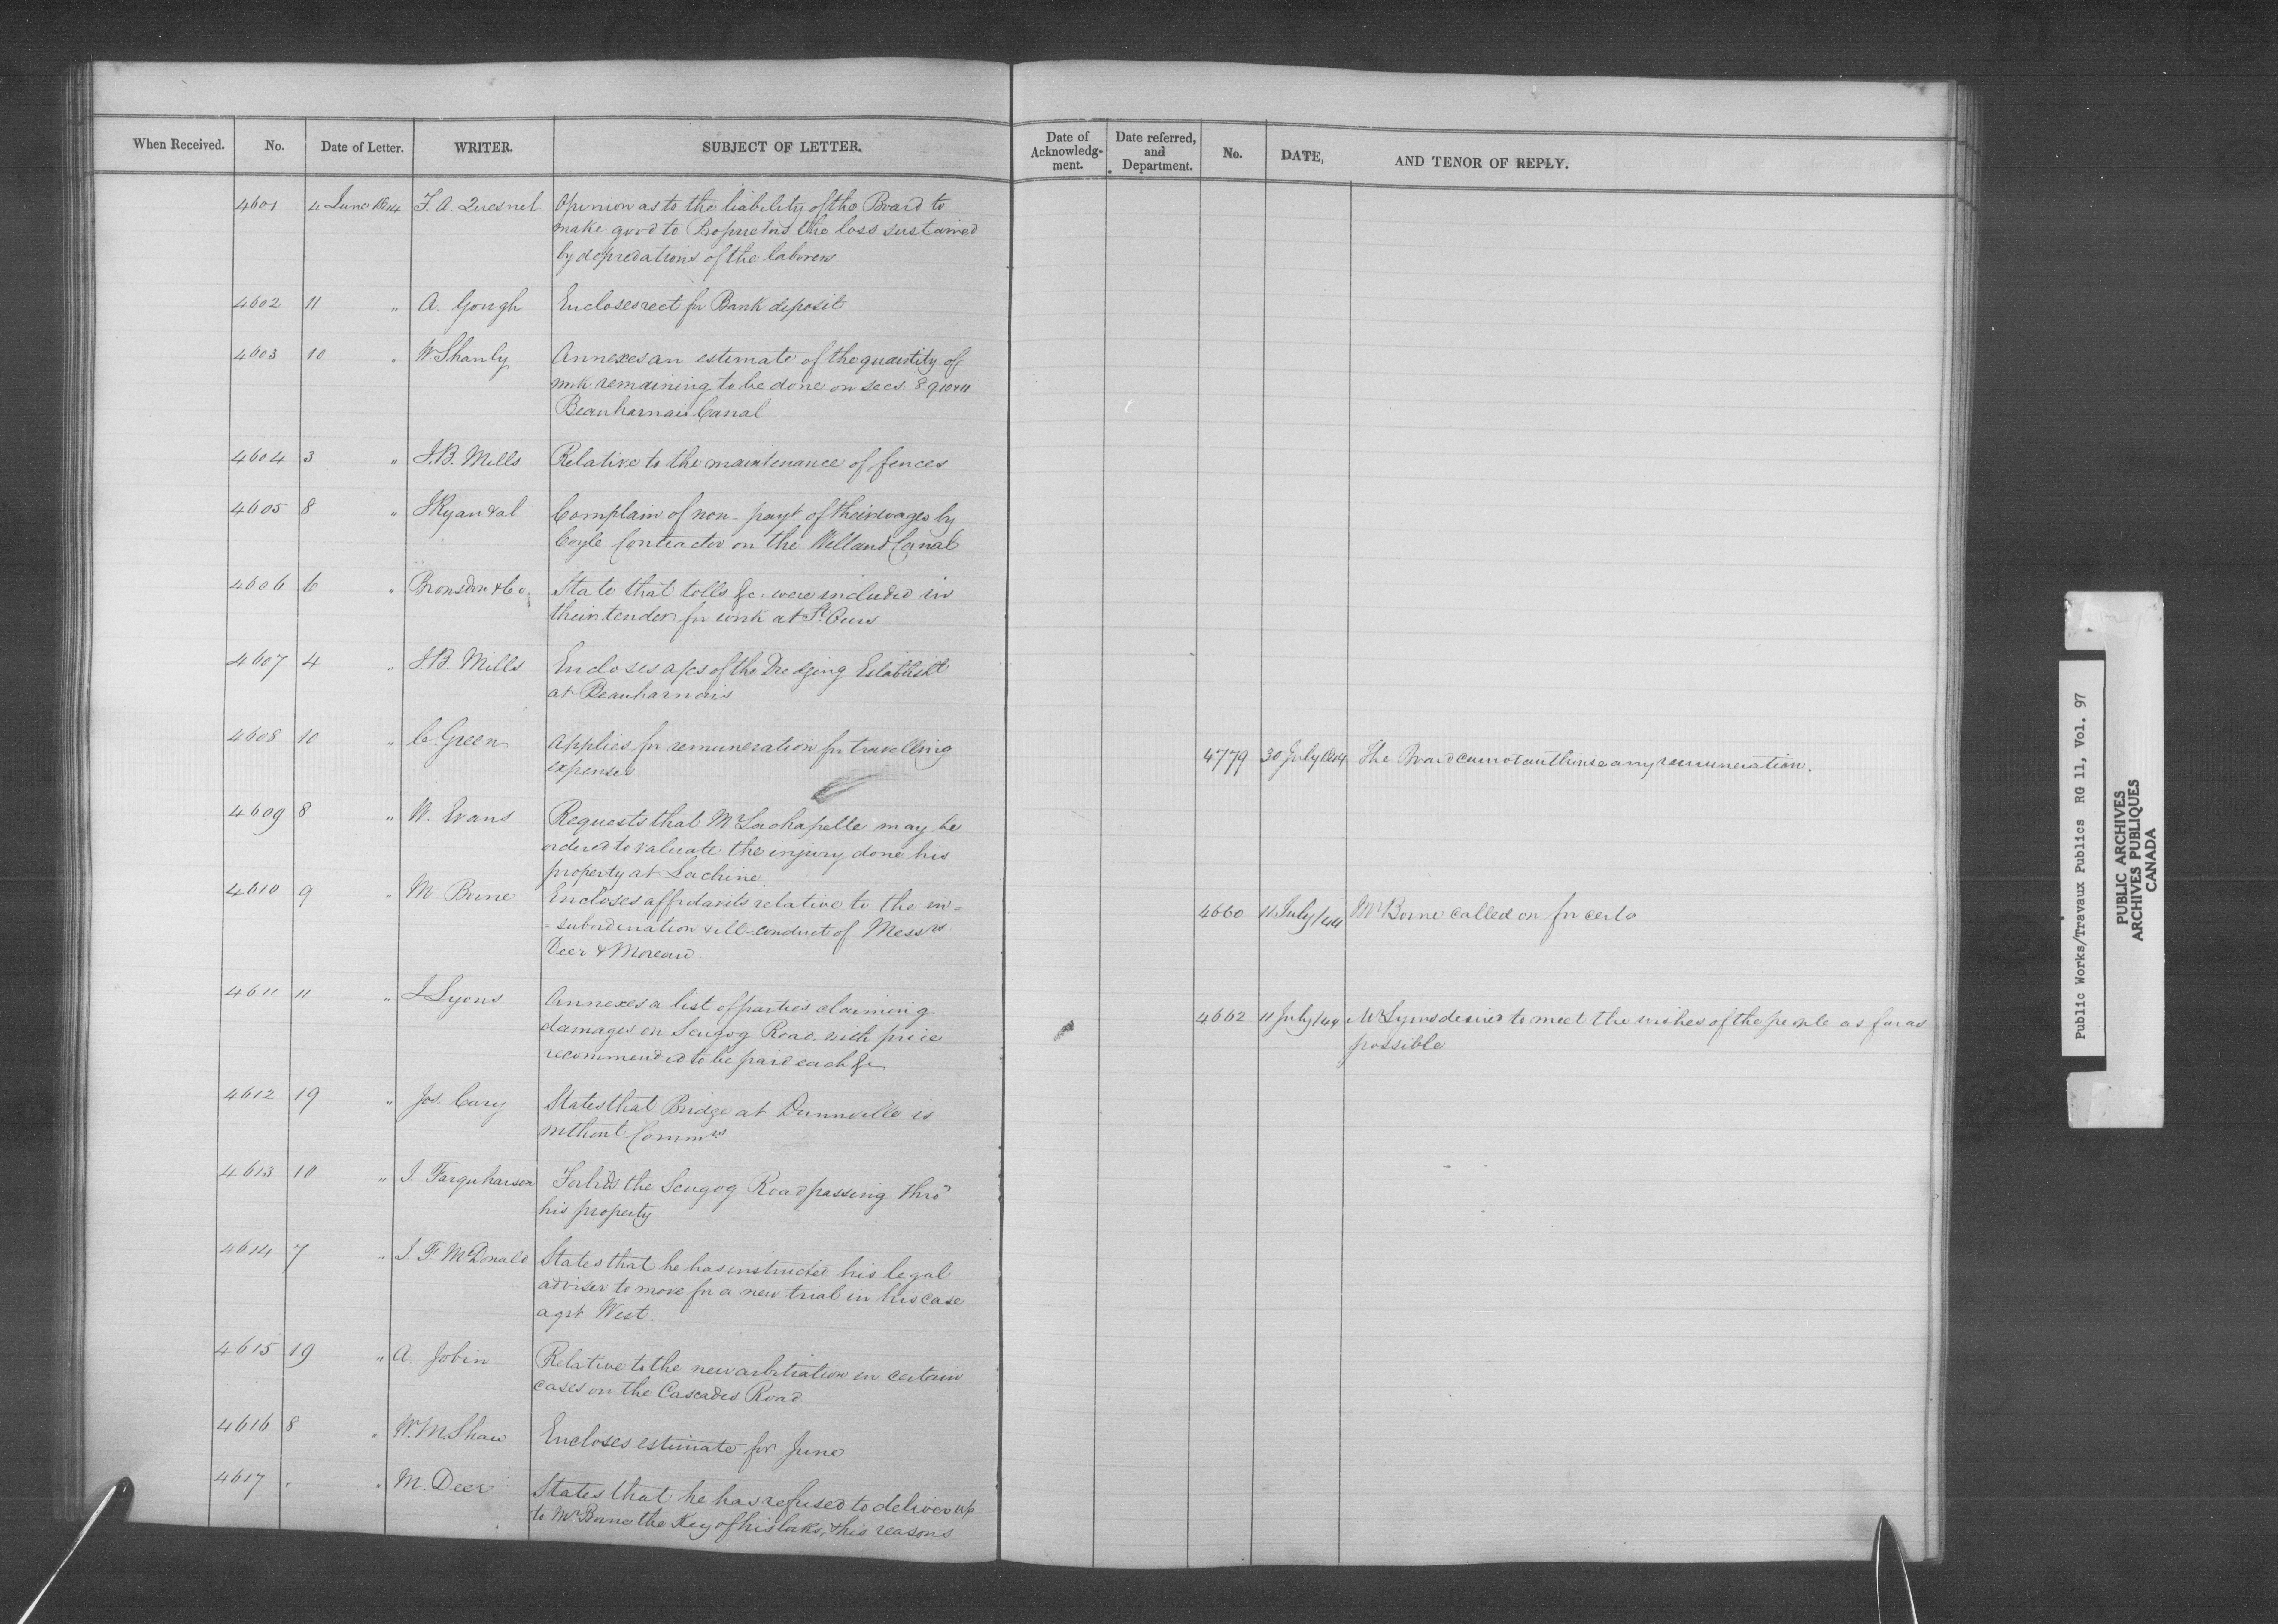 When Received. No. Date of Letter. WRITER. SUBJECT OF LETTER. Date of Acknowledg-ment. Date referred, and Department. No. DATE, AND TENOR OF REPLY.
4601 4 June 1844 F. A. Quesnel Opinion as to the liability of the Board to
make good to Proprietors the loss sustained
by depredations of the laborers
4602 11 " A. Gough Encloses rect for Bank deposit
4603 10 " W Shanly Annexes an estimate of the quantity of
work remaining to be done on secs. 8 9 10 & 11
Beauharnais Canal
4604 3 " J.B. Mills Relative to the maintenance of fences
4605 8 " J Ryan & al Complain of non-payt of their wages by
Coyle Contractor on the Welland Canal
4606 6 " Bronsdon & Co. State that tolls &c. were included in
their tender for work at St Ours
4607 4 " J.B. Mills Encloses a/cs of the Dredging Establisht
at Beauharnois
4608 10 " C. Green Applies for remuneration for travelling
expenses
4779 30 July 1844 The Board cannot authorise any remuneration.
4609 8 " W. Evans Requests that Mr Lachapelle may be
ordered to valuate the injury done his
property at Lachine
4610 9 " M. Borne Encloses affidavits relative to the in=
=subordination & ill-conduct of Messrs
Deer & Moreau.
4660 11 July/44 Mr Borne called on for certs
4611 11 " J Lyons Annexes a list of parties claiming
damages on Scugog Road with price
recommended to be paid each &c
4662 11 July/44 Mr Lyons desired to meet the wishes of the people as far as
possible
4612 19 " Jos. Cary States that Bridge at Dunnville is
without Commrs
4613 10 " J. Farquharson Forbids the Scugog Road passing thro'
his property
4614 7 " J. F. McDonald States that he has instructed his legal
adviser to move for a new trial in his case
agst West.
4615 19 " A. Jobin Relative to the new arbitration in certain
cases on the Cascades Road.
4616 8 " W. M. Shaw Encloses estimate for June
4617 " " M. Deer States that he has refused to deliver up
to Mr Borne the Key of his locks, & his reasons
Public Works/Travaux Publics RG 11, Vol. 97
PUBLIC ARCHIVES
ARCHIVES PUBLIQUES
CANADA